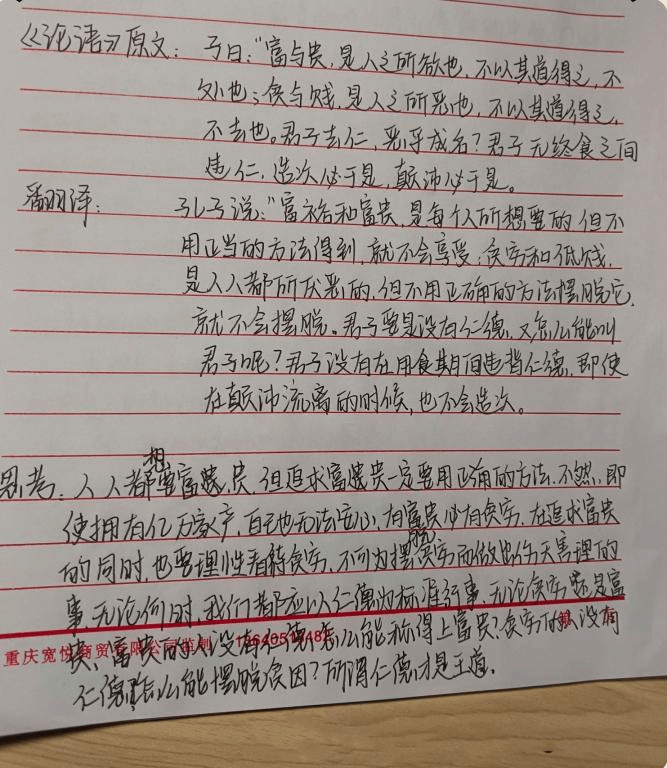 《论语》原文：子曰："富与贵，是人之所欲也，不以其道得之，不
处也；贫与贱，是人之所恶也，不以其道得之，
不去也。君子去仁，恶乎成名？君子无终食之间
违仁，造次必于是，颠沛必于是。
翻译：孔子说："富裕和富贵，是每个人所想要的，但不
用正当的方法得到，就不会享受；贫穷和低贱，
是人人都所厌恶的，但不用正确的方法摆脱它，
就不会摆脱。君子要是没有仁德，又怎么能叫
君子呢？君子没有在用食期间违背仁德，即使
在颠沛流离的时候，也不会造次。
思考：人人都想要富贵，但追求富贵一定要用正确的方法，不然，即
使拥有亿万家产，自己也无法安心，有富贵必有贫穷，在追求富贵
的同时，也要理性看待贫穷，不可为摆脱贫穷而做出伤天害理的
事，无论何时，我们都应以仁德为标准行事，无论贫穷还是富
贵，富贵的人没有仁德怎么能称得上富贵？贫穷的人没有
重庆宽悦商贸有限公司监制
仁德怎么能摆脱贫困？所谓仁德才是王道。